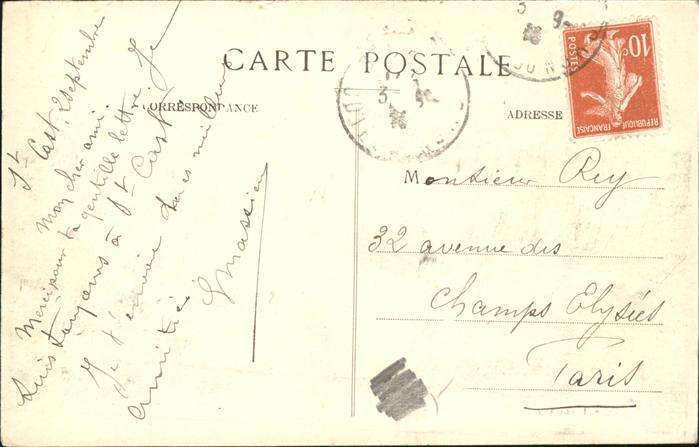 CARTE POSTALE
CORRESPONDANCE
ADRESSE
10c
POSTES
REPUBLIQUE FRANÇAISE
St Cast, 2 septembre
Mon cher ami.
Merci pour ta gentille lettre. Je
suis toujours à St Cast.
Je t'envoie mes meilleures
amitiés
GMassieu
Monsieur Rey
32 avenue des
Champs Elysées
Paris